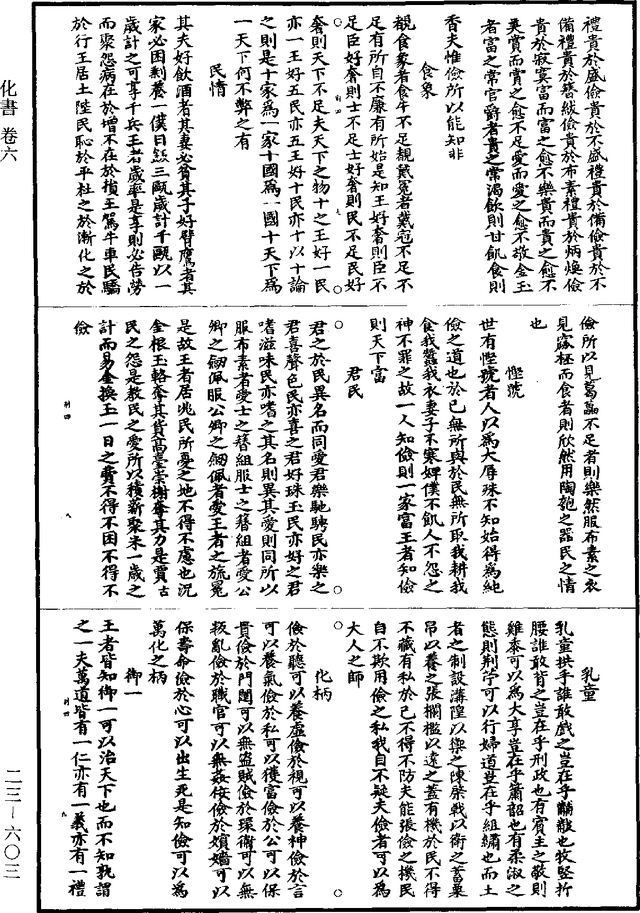 化書 卷六
禮貴於盛儉貴於不盛禮貴於備儉貴於不
備禮貴於簪紱儉貴於布素禮貴於炳煥儉
貴於寂寞富而富之愈不樂貴而貴之愈不
美賞而賞之愈不足愛而愛之愈不敬金玉
者富之常官爵者貴之常渴飲則甘飢食則
香夫惟儉所以能知非
食象
觀食象者食牛不足觀戴冕者戴冠不足不
足有所自不廉有所始是知王好奢則臣不
足臣好奢則士不足士好奢則民不足民好
奢則天下不足夫天下之物十之王好一民
亦一王好五民亦五王好十民亦十以十論
之則是十家為一家十國為一國十天下為
一天下何不弊之有
民情
其夫好飲酒者其妻必貧其子好臂鷹者其
家必困剩養一僕日飯三甌歲計千甌以一
歲計之可享千兵王者歲率是享則必告勞
而聚怨病在於增不在於損王駕牛車民驕
於行王居土陛民恥於平杜之於漸化之於
儉所以見葛藟不足者則樂然服布素之衣
見窳柸而食者則欣然用陶匏之器民之情
也
慳號
世有慳號者人以為大辱殊不知始得為純
儉之道也於己無所與於民無所取我耕我
食我蠶我衣妻子不寒婢僕不飢人不怨之
神不罪之故一人知儉則一家富王者知儉
則天下富
君民
君之於民異名而同愛君樂馳騁民亦樂之
君喜聲色民亦喜之君好珠玉民亦好之君
嗜滋味民亦嗜之其名則異其愛則同所以
服布素者愛士之簪組服士之簪組者愛公
卿之劒佩服公卿之劒佩者愛王者之旒冕
是故王者居兆民所憂之地不得不慮也況
金根玉輅奪其貨高臺崇榭奪其力是賈古
民之怨是教民之愛所以積薪聚米一歲之
計而易金換玉一日之費不得不困不得不
儉
乳童
乳童拱手誰敢戲之豈在乎黼黻也牧豎折
腰誰敢背之豈在乎刑政也有賓主之敬則
雞黍可以為大享豈在乎簫韶也有柔淑之
態則荆苧可以行婦道豈在乎組繡也而王
者之制設溝隍以禦之陳棨戟以衛之蓄粟
帛以養之張欄檻以遠之蓋有機於民不得
不藏有私於己不得不防夫能張儉之機民
自不欺用儉之私我自不疑夫儉者可以為
大人之師
化柄
儉於聽可以養虛儉於視可以養神儉於言
可以養氣儉於私可以獲富儉於公可以保
貴儉於門闥可以無盜賊儉於環衛可以無
叛亂儉於職官可以無姦佞儉於嬪嬙可以
保壽命儉於心可以出生死是知儉可以為
萬化之柄
御一
王者皆知御一可以治天下也而不知孰謂
之一夫萬道皆有一仁亦有一義亦有一禮
二三—六〇三